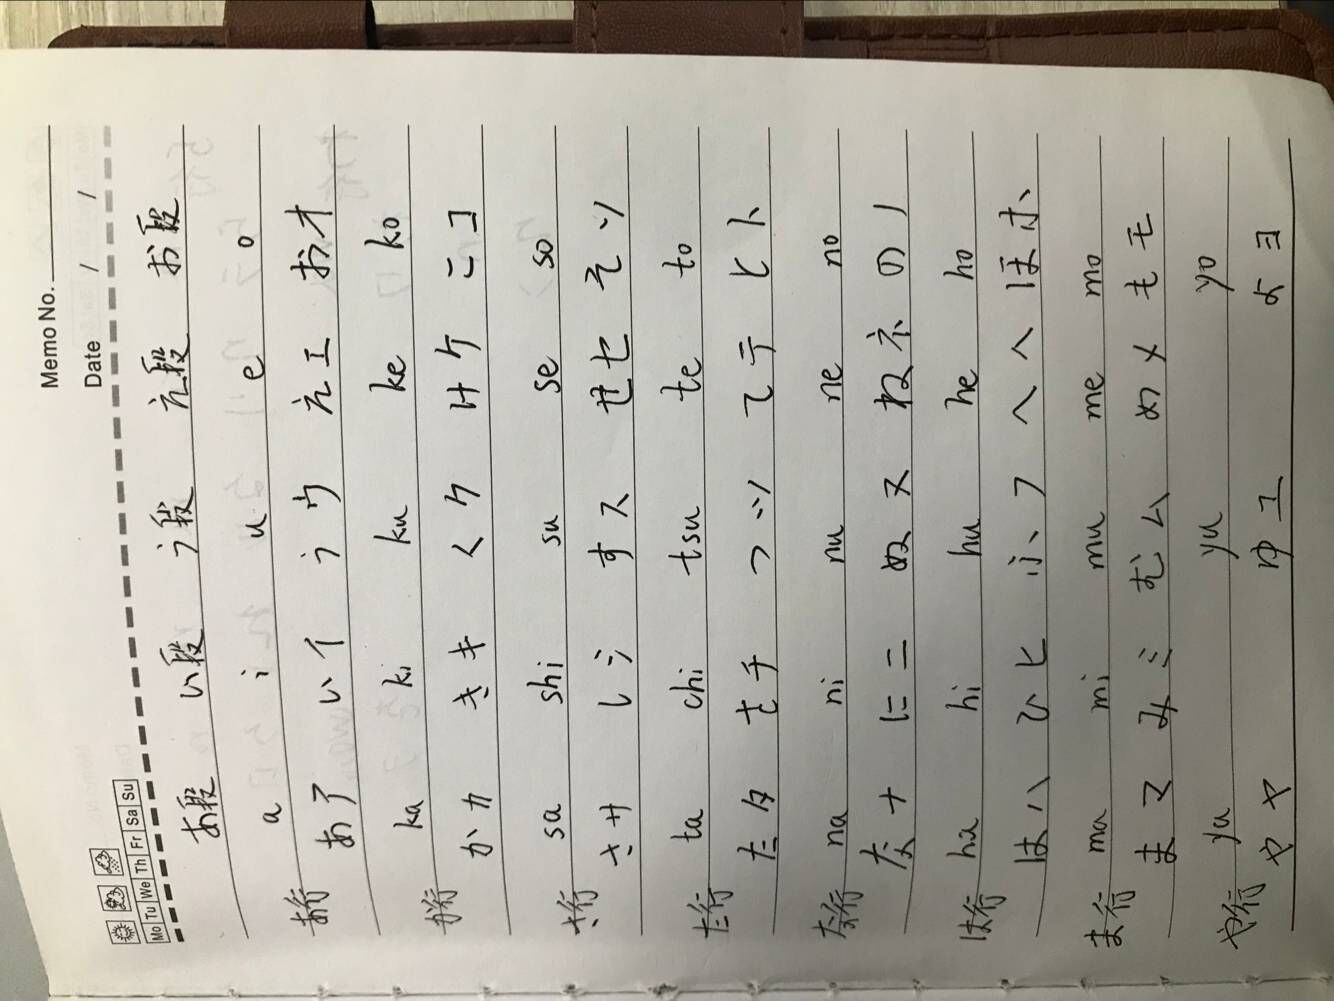 Memo No.
Mo Tu We Th Fr Sa Su
Date / /
あ段 い段 う段 え段 お段
a i u e o
あ行 あア いイ うウ えエ おオ
ka ki ku ke ko
か行 かカ きキ くク けケ こコ
sa shi su se so
さ行 さサ しシ すス せセ そソ
ta chi tsu te to
た行 たタ ちチ つツ てテ とト
na ni nu ne no
な行 なナ にニ ぬヌ ねネ のノ
ha hi hu he ho
は行 はハ ひヒ ふフ へヘ ほホ
ma mi mu me mo
ま行 まマ みミ むム めメ もモ
ya yu yo
や行 やヤ ゆユ よヨ